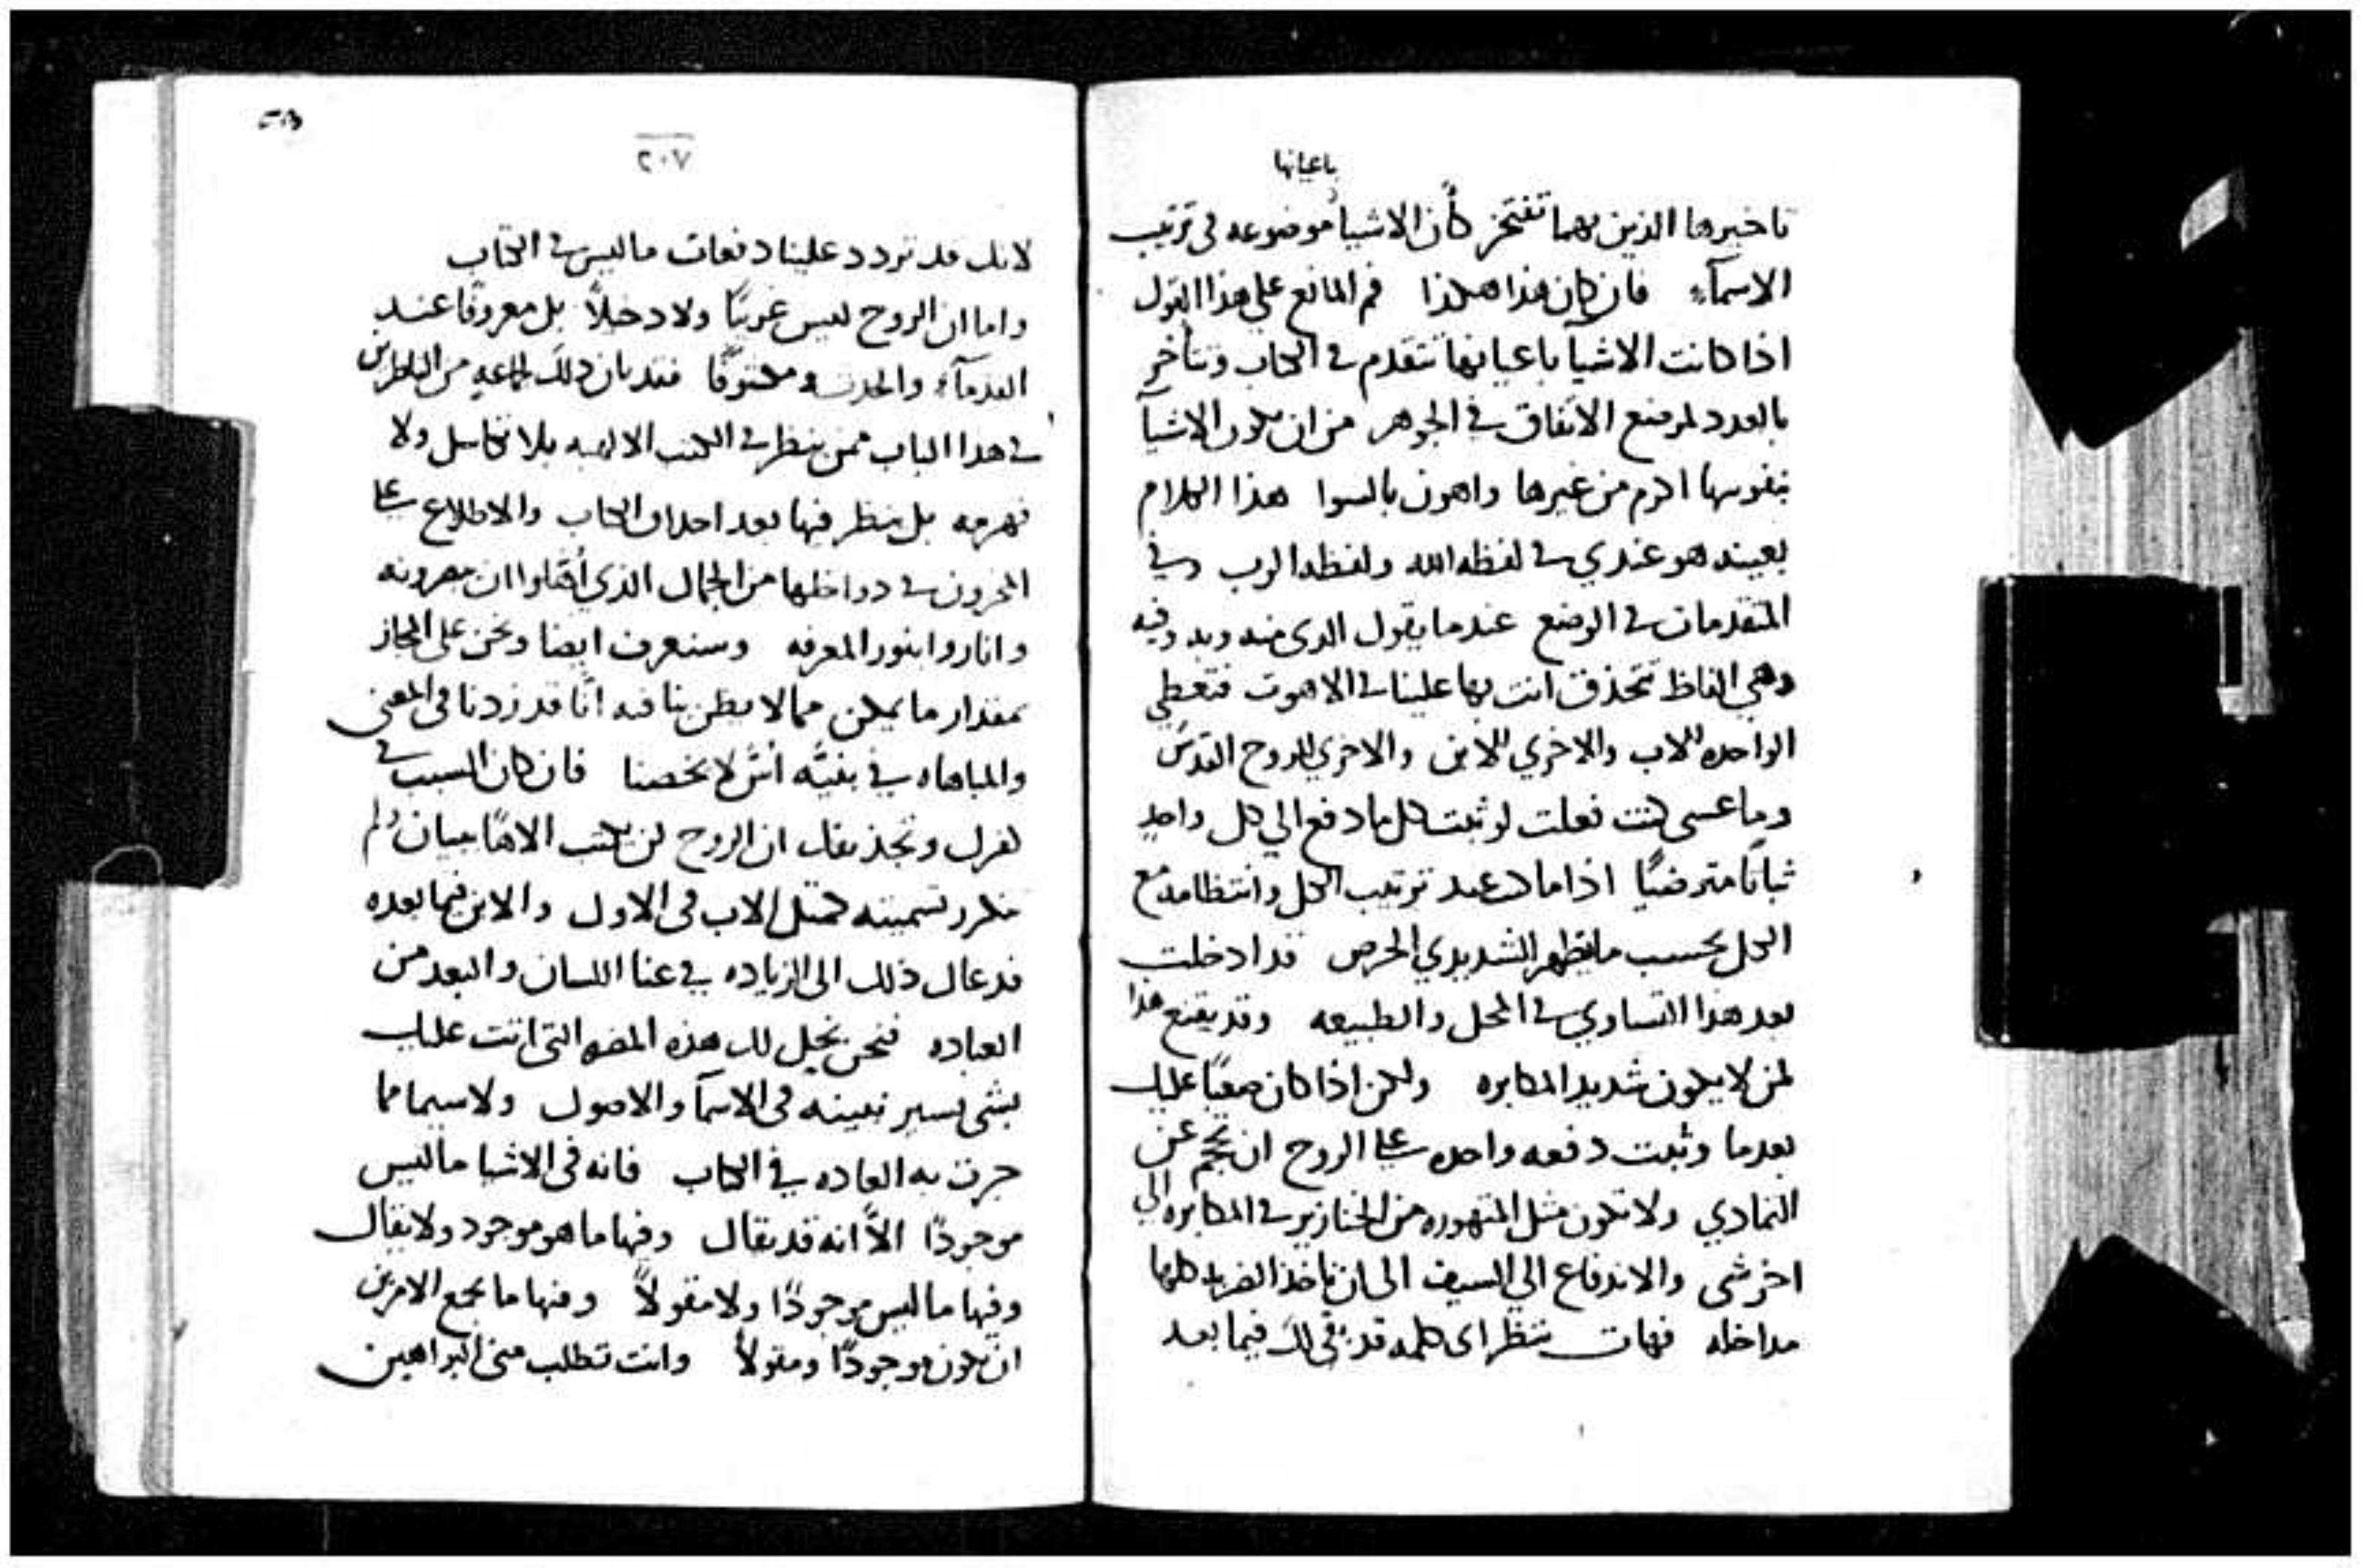 باعيانها
تاخيرها الذين بهما تفتخر كأن الاشيا موضوعه في ترتيب
الاسمآء فان كان هذا هكذا فم المانع على هذا القول
اذا كانت الاشيآ باعيانها تتقدم في الكتاب وتتأخر
بالعدد لموضع الاتفاق في الجوهر من ان تكون الاشيآ
بنفوسها اكرم من غيرها واهون بالسوا هذا الكلام
بعينه هو عندي في لفظه الله ولفظه الرب وفي
المتقدمات في الوضع عندما يقول الذي منه وبه وفيه
وهي الفاظ تتحذق انت بها علينا في الاهوت فتعطي
الواحده للاب والاخري للابن والاخري للروح القدس
وما عسى كنت فعلت لو ثبت كل ما دفع الي كل واحد
ثباتا مترضيًا اذا ما عند ترتيب الكل وانتظامه مع
الكل بحسب ما يظهر الشديدي الحرص قد ادخلت
بعد هذا التساوي في المحل والطبيعه وقد يقنع هذا
لمن لا يكون شديد المكابره ولكن اذا كان صعبًا عليك
بعدما وثبت دفعه واحده على الروح ان تحجم عن
التمادي ولا تكون مثل المتهوره من الخنازير في المكابره الي
اخر شى والاندفاع الي السيف الى ان تاخذ الضربه كلها
مداخله فهات ننظر اى كلمه قد بقى لك فيما بعد
٢٠٧
لانك قد تردد علينا دفعات ما ليس في الكتاب
واما ان الروح ليس غريبًا ولا دخيلاً بل معروفًا عند
القدمآء والحدث ومكشوفًا فقد بان ذلك لجماعه من الناظرين
في هذا الباب ممن ينظر في الكتب الالهيه بلا تكاسل ولا
بل ينظر فيها بعد الكتاب والاطلاع على
المخزون في دواخلها من الجمال الذي
واناروا بنور المعرفه وسنعرف ايضا ونحن على المجاز
بمقدار ما يمكن مما لا يظن بنا فيه انّا قد زدنا في المعنى
والمباهاه في لا تخصنا فان كان السبب في
ان الروح لن يكتب الاهًا ببيان ولم
تتكرر تسميته كمثل الاب فى الاول والابن فيما بعده
فد ذلك الى الزياده في عنا اللسان والبعد من
العباده فنحن نحل لك هذه المضره التى اتت عليك
بشى يسير نبينه فى الاسمآ والامور ولا سيما مما
جرت به العاده في الكتاب فانه فى الاشيا ما ليس
موجودًا الاّ انه قد يقال وفيها ما هو موجود ولا يقال
وفيها ما ليس موجودًا ولا مقولاً ومنها ما يجمع الامرين
ان يكون موجودًا ومقولاً وانت تطلب منى البراهين